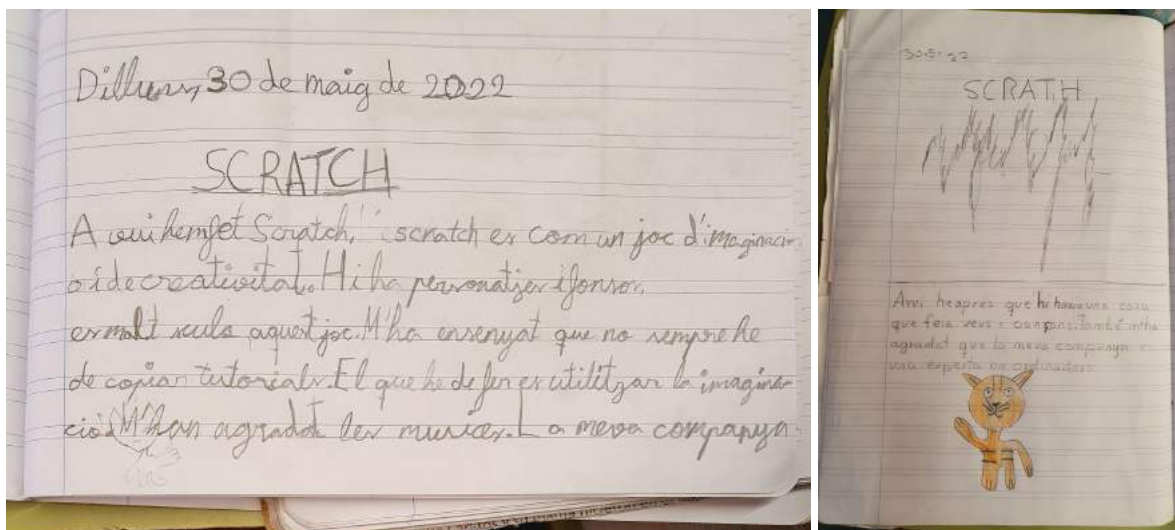 Dilluns, 30 de maig de 2022
SCRATCH
A vui hem fet Scratch, i scratch es com un joc d'imaginaci-
o i de creativitat. Hi ha personatjes i fonsos.
es molt xulo aquest joc. M'ha ensenyat que no sempre he
de copiar tutorials. El que he de fer es utilitzar la imagina-
ció. M'han agradat les musices. La meva companya
30-5-22
SCRATH
Avui he apres que hi havia una cosa
que feia veus i
També m'ha
agradat que la meva companya
una experta en ordinadors